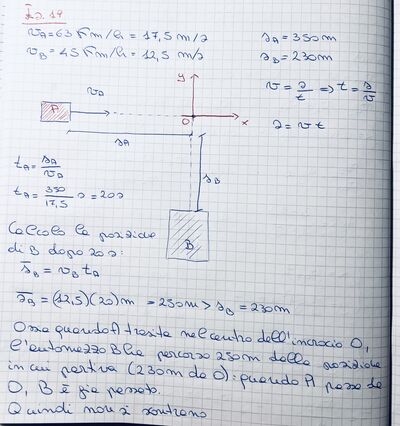 Es. 19
v_A = 63 Km/h = 17,5 m/s
v_B = 45 Km/h = 12,5 m/s
s_A = 350m
s_B = 230m
v = s/t => t = s/v
s = v t
y
v_A
A
O
x
s_A
s_B
B
t_A = s_A/v_A
t_A = 350/17,5 s = 20s
Calcolo la posizione
di B dopo 20s:
s̄_B = v_B t_A
s̄_B = (12,5)(20)m = 250m > s_B = 230m
Ossia quando A transita nel centro dell'incrocio O,
l'automezzo B ha percorso 250m dalla posizione
in cui partiva (230m da O): quando A passa da
O, B è già passato.
Quindi non si scontrano